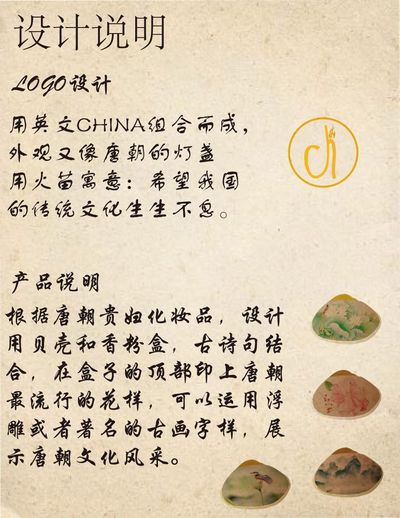 设计说明
LOGO设计
用英文CHINA组合而成，
外观又像唐朝的灯盏
用火苗寓意：希望我国
的传统文化生生不息。
产品说明
根据唐朝贵妇化妆品，设计
用贝壳和香粉盒，古诗句结
合，在盒子的顶部印上唐朝
最流行的花样，可以运用浮
雕或者著名的古画字样，展
示唐朝文化风采。